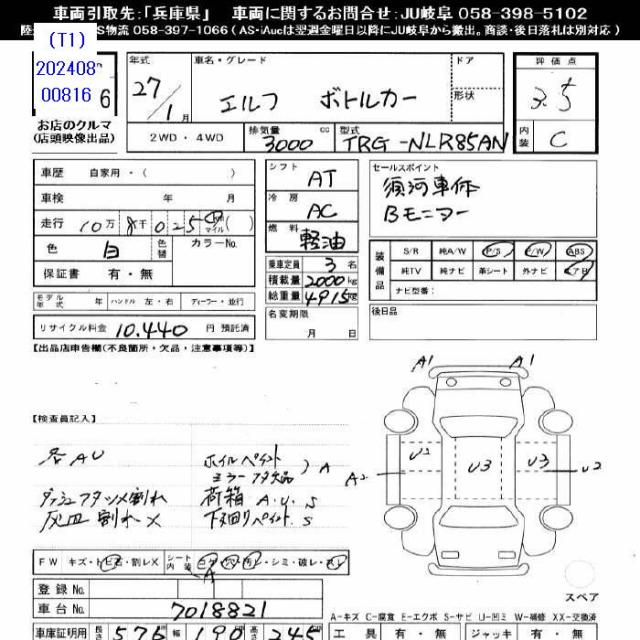 車両引取先:「兵庫県」 車両に関するお問合せ:JU岐阜 058-398-5102
S物流 058-397-1066 (AS-iAucは翌週金曜日以降にJU岐阜から搬出。商談・後日落札は別対応)
(T1)
202408
00816
6
お店のクルマ
(店頭映像出品)
年式 27/1月
車名・グレード エルフ ボトルカー
ドア
形状
評価点 3.5
内装 C
2WD・4WD
排気量 3000 cc
型式 TRG-NLR85AN
車歴 自家用・( )
車検 年 月
走行 10万8千025 km マイル ( )
色 白 色替 カラーNo.
保証書 有・無
モデル年式 年 ハンドル 左・右 ディーラー・並行
リサイクル料金 10.440 円 預託済
シフト AT
冷房 AC
燃料 軽油
乗車定員 3 名
積載量 2000 kg
総重量 4915 kg
名変期限 月 日
セールスポイント
須河車体
Bモニター
装備品 S/R 純A/W P/S P/W ABS
純TV 純ナビ 革シート 外ナビ エアB
ナビ型番:
後日品
【出品店申告欄(不良箇所・欠品・注意事項等)】
【検査員記入】
各AU
ホイルペイント
ミラーフタ欠品 ) A
ダッシュフタツメ割れ
荷箱 A.U.S
灰皿割れ×
下廻りペイント.S
A1 A1
A2 U2 U3 U3 U2
スペア
FW キズ・トビ石・割レX シート内装 コゲ・穴・汚レ・シミ・破レ・スレ
A
登録No.
車台No. 7018821
A=キズ C=腐食 E=エクボ S=サビ U=凹ミ W=補修 XX=交換済
車庫証明用 長さ 576 幅 190 高さ 245
工具 有・無 ジャッキ 有・無